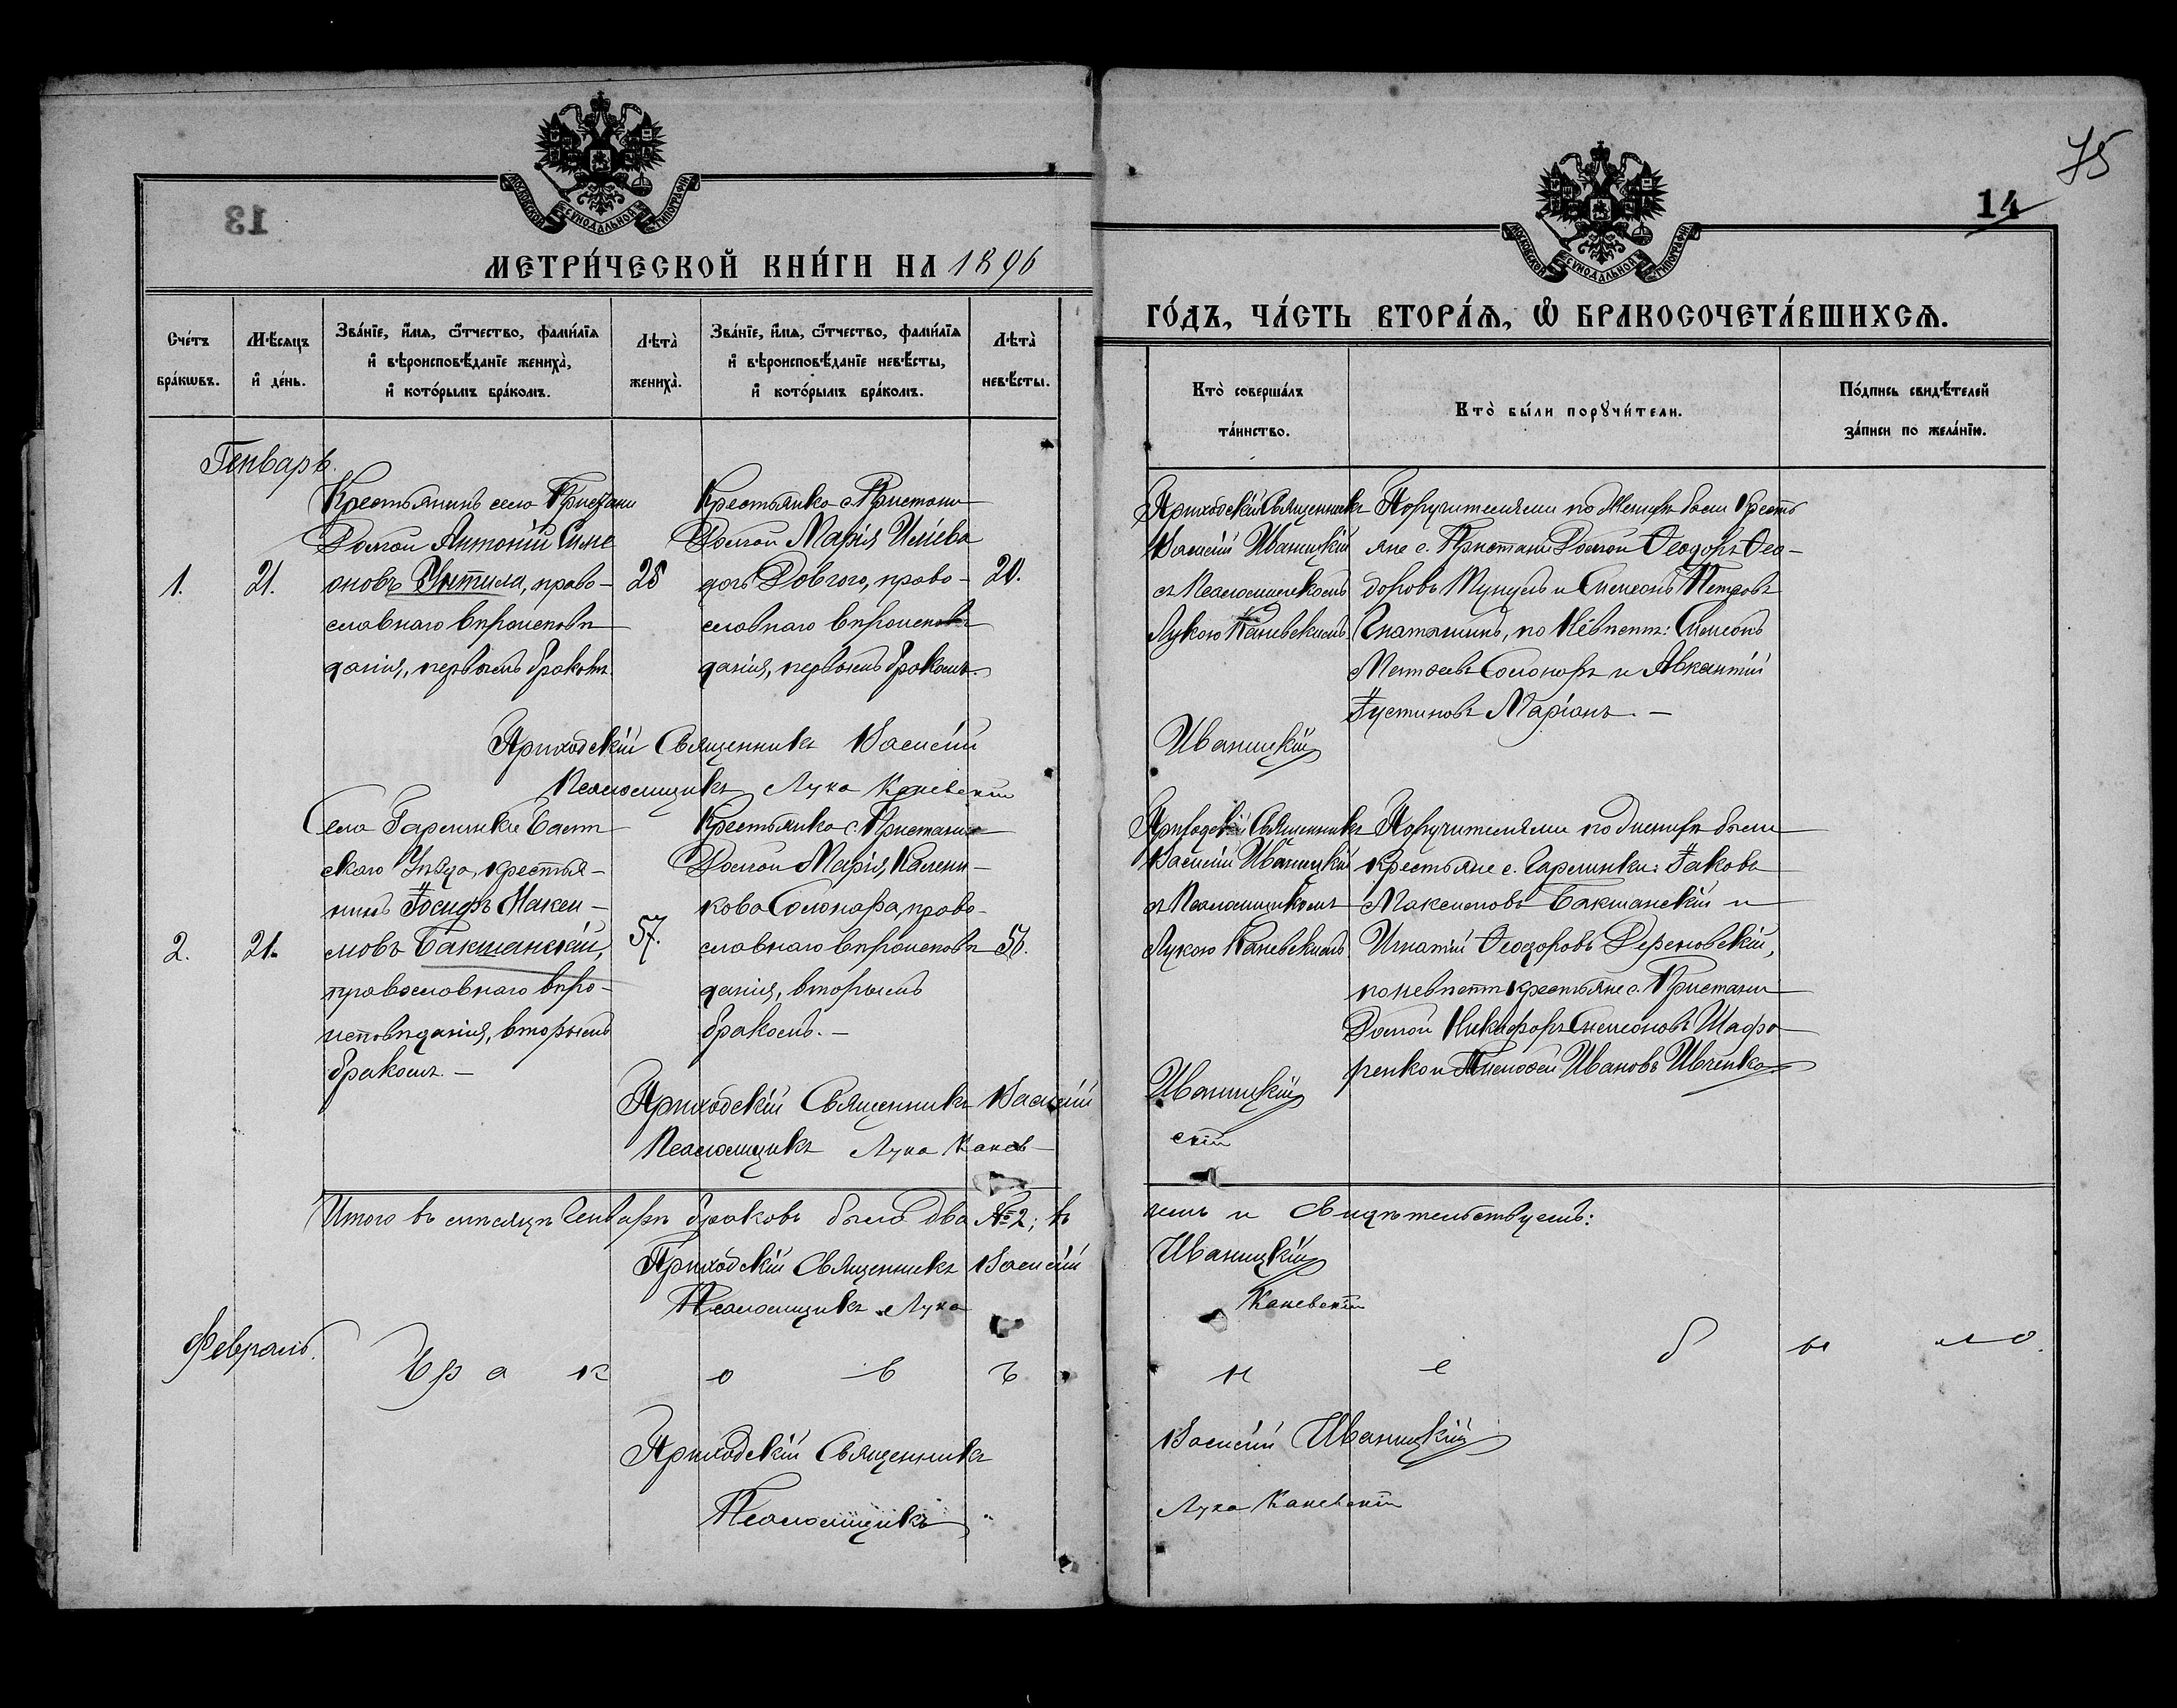 13
МОСКОВСКОЙ СѴНОДАЛЬНОЙ ТИПОГРАФІИ
МЕТРИ́ЧЕСКОЙ КНИ́ГИ НА 1896
Сче́тъ бра́кѡвъ.
Мѣ́сяцъ и҆ де́нь.
Зва́нїе, и҆́мѧ, ѻ҆́тчество, фами́лїѧ и҆ вѣроисповѣ́данїе жениха̀, и҆ кото́рымъ бра́комъ.
Лѣта̀ жениха̀.
Зва́нїе, и҆́мѧ, ѻ҆́тчество, фами́лїѧ и҆ вѣроисповѣ́данїе невѣ́сты, и҆ кото́рымъ бра́комъ.
Лѣта̀ невѣ́сты.
Генварь.
1.
21.
Крестьянинъ села Пристани
Долгой Антоній Симе
оновъ Унтила, право-
славнаго вѣроисповѣ
данія, первымъ бракомъ.
25
Крестьянка с. Пристани
Долгой Марія Исіева
дочь Довгого, право-
славнаго вѣроисповѣ
данія, первымъ бракомъ.
20.
Приходскій Священникъ Василій
Псаломщикъ Лука Каневскій
2.
21.
Села Гармацкое Балт
скаго Уѣзда, крестья-
нинъ Іосифъ Макси-
мовъ Бакшанскій,
православнаго вѣро-
исповѣданія, вторымъ
бракомъ.-
57.
Крестьянка с. Пристани
Долгой Марія Калени-
кова Солонара, право-
славнаго вѣроисповѣ
данія, вторымъ
бракомъ.-
56.
Приходскій Священникъ Василій
Псаломщикъ Лука Канев-
Итого въ мѣсяцѣ Генварѣ браковъ было два №2; въ
Приходскій Священникъ Василій
Псаломщикъ Лука
Февраль.
Браковъ
Приходскій Священникъ
Псаломщикъ
75
14
МОСКОВСКОЙ СѴНОДАЛЬНОЙ ТИПОГРАФІИ
ГО́ДЪ, ЧА́СТЬ ВТОРА́Ѧ, Ѡ҆ БРАКОСОЧЕТА́ВШИХСѦ.
Кто̀ соверша́лъ та́инство.
Кто̀ бы́ли порꙋчи́тели.
По́дпись свидѣ́телей за́писи по жела́нїю.
Приходскій Священникъ
Василій Иваницкій
съ Псаломщикомъ
Лукою Каневскимъ.
Поручителями по Женихѣ были Кресть
яне с. Пристани Долгой Ѳеодоръ Ѳео-
доровъ Мунулъ и Симеонъ Петровъ
Гнатышинъ, по Невѣстѣ: Симеонъ
Матѳеевъ Солонаръ и Авкантій
Іустиновъ Маріанъ.-
Иваницкій
Приходскій Священникъ
Василій Иваницкій
съ Псаломщикомъ
Лукою Каневскимъ.
Поручителями по Женихѣ были
крестьяне с. Гармацки: Іаковъ
Максимовъ Бакшанскій и
Игнатій Ѳеодоровъ Дереновскій,
по невѣстѣ крестьяне с. Пристани
Долгой Никифоръ Симеоновъ Шафа
ренко и Тимоѳей Ивановъ Ивченко.
Иваницкій
скій
чемъ и Свидѣтельствуемъ:
Иваницкій
Каневскій
не было.
Василій Иваницкій
Лука Каневскій